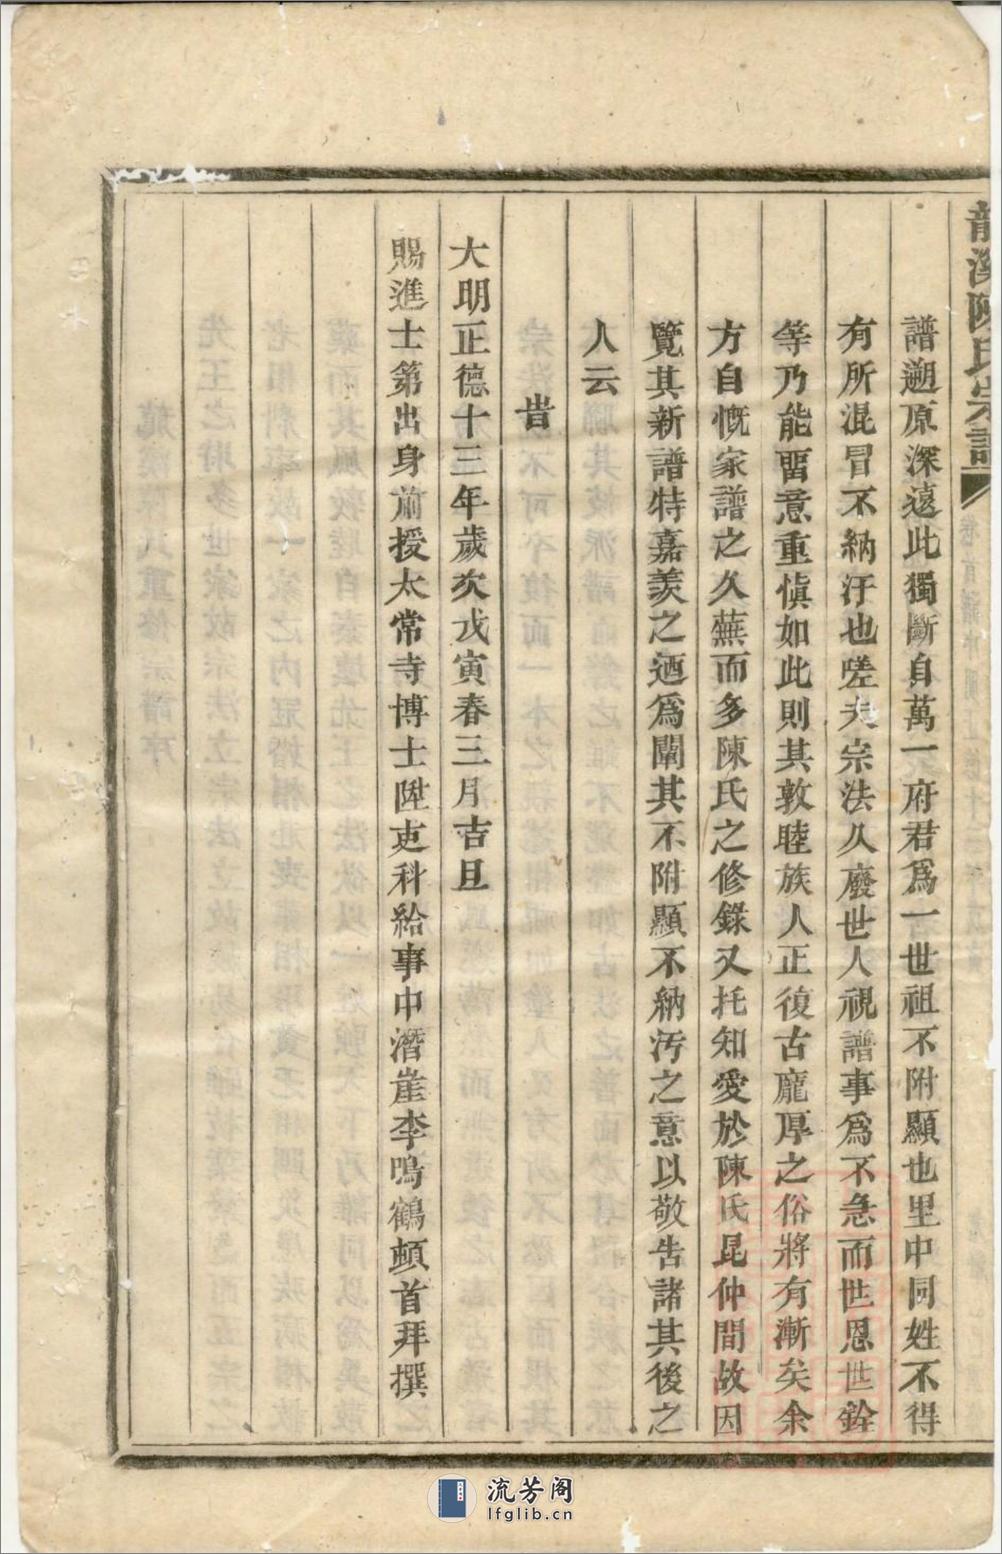 龍溪陳氏宗譜
譜遡原深遠此獨斷自萬一府君爲一世祖不附顯也里中同姓不得
有所混冒不納汙也嗟夫宗法久廢世人視譜事爲不急而世恩世銓
等乃能畱意重愼如此則其敦睦族人正復古龐厚之俗將有漸矣余
方自慨家譜之久蕪而多陳氏之修錄又托知愛於陳氏昆仲間故因
覽其新譜特嘉羡之廼爲闡其不附顯不納汚之意以敬告諸其後之
人云
旹
大明正德十三年歲次戊寅春三月吉旦
賜進士第出身前授太常寺博士陞吏科給事中潛崖李鳴鶴頓首拜撰
流芳阁
lfglib.cn